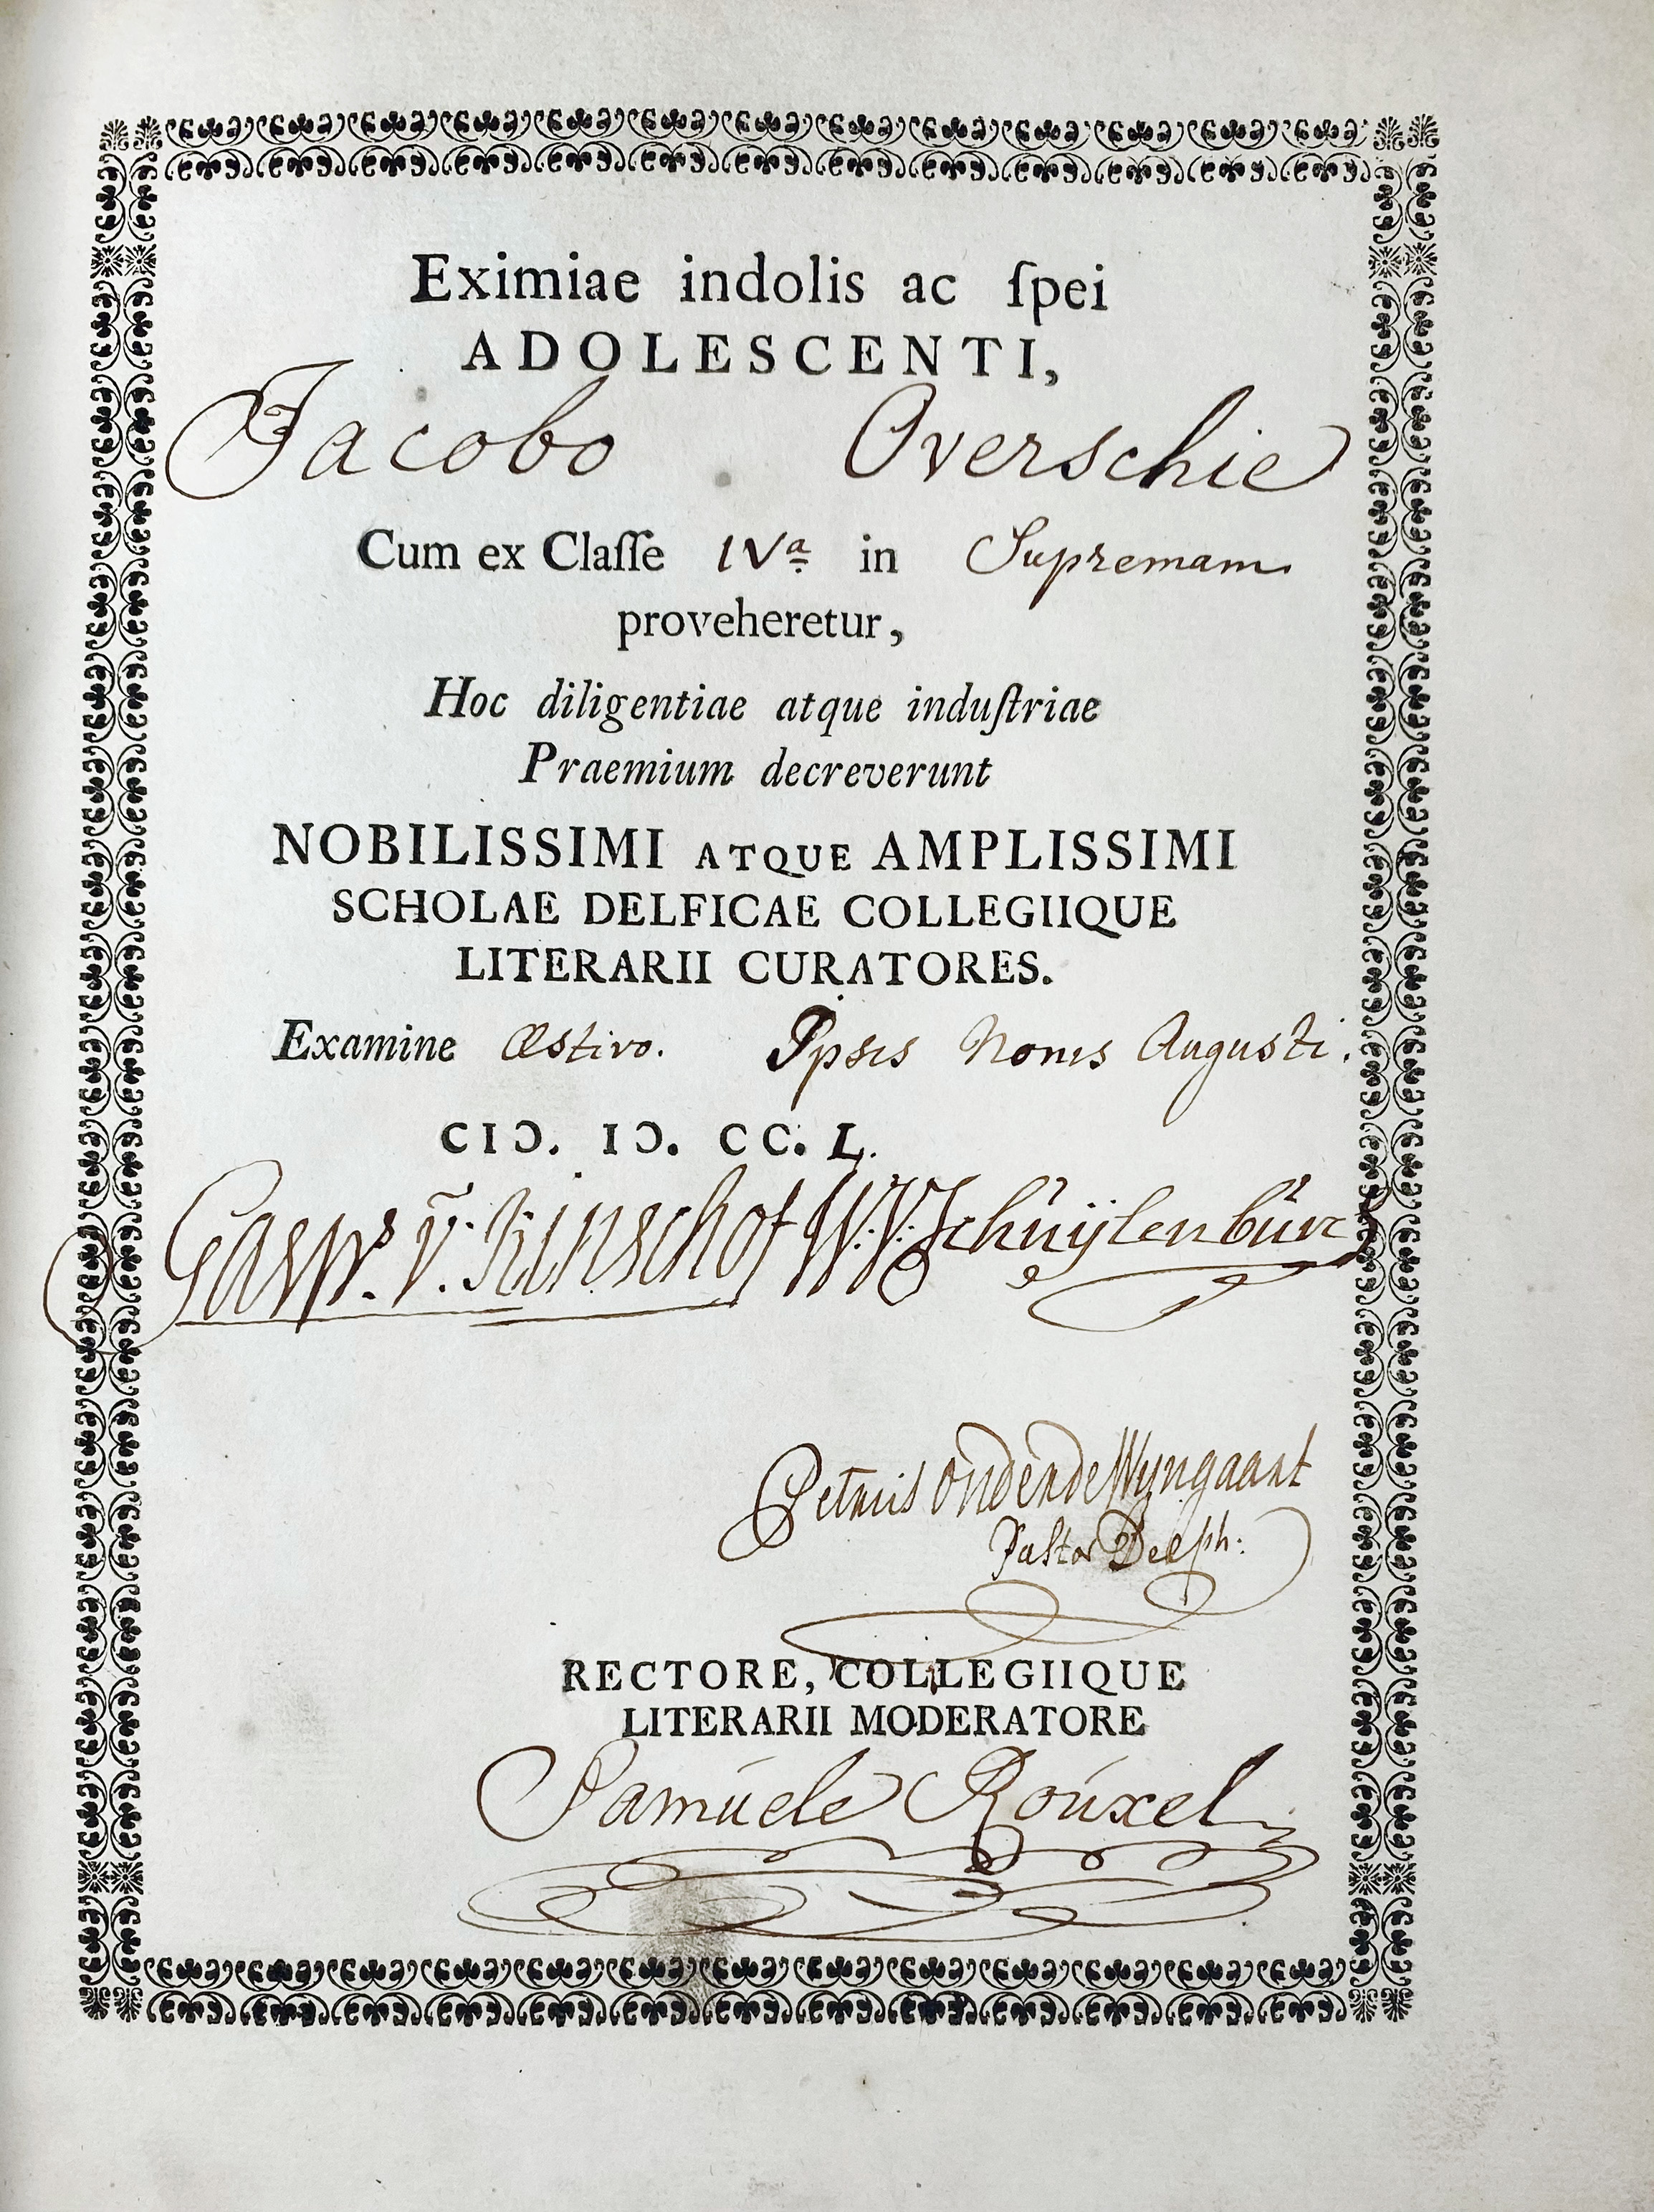 Eximiae indolis ac ſpei
ADOLESCENTI,
Jacobo Overschie
Cum ex Claſſe IVa in Supremam
proveheretur,
Hoc diligentiae atque induſtriae
Praemium decreverunt
NOBILISSIMI ATQUE AMPLISSIMI
SCHOLAE DELFICAE COLLEGIIQUE
LITERARII CURATORES.
Examine Æstivo. Ipsis Nonis Augusti.
CIↃ. IↃ. CC. L.
Gasprs v. Kinschot W. V. Schuijlenburch
Petrus Onderde Wyngaart
Pastor Delph:
RECTORE, COLLEGIIQUE
LITERARII MODERATORE
Samúele Roúxel